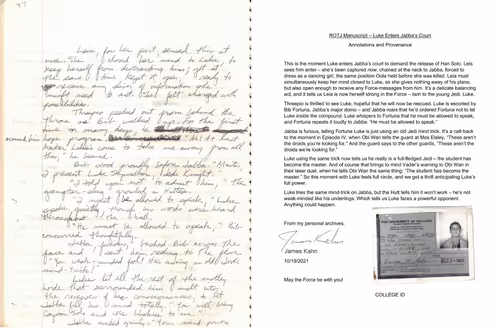 37
Leia, for her part, sensed this at
once. She closed her mind to Luke, to
keep herself from distracting him; yet at
the same time kept it open, ready to
receive any bits of information she
might need to act. She felt charged with
possibilities.
Threepio peeked out from behind the
throne as Bib walked up. For the first
hope
Master Luke's come to take me away from all
this, he beamed.
Bib stood proudly before Jabba. "Master,
I present Luke Skywalker, Jedi Knight."
"I told you not to admit him," the
gangster-slug growled in Huttese.
"I must be allowed to speak," Luke
spoke quietly, though his words were heard
throughout the hall.
"He must be allowed to speak," Bib
concurred thoughtfully.
Jabba, furious, bashed Bib across the
face and sent him reeling to the floor.
"You weak-minded fool! He's using an old Jedi
mind-trick!"
Luke let all the rest of the motley
horde that surrounded him melt into
the recesses of his consciousness, to let
Jabba fill his mind totally. "You will bring
Captain Solo and the Wookiee to me."
Jabba smiled grimly. "Your mind powers
ROTJ Manuscript – Luke Enters Jabba's Court
Annotations and Provenance
This is the moment Luke enters Jabba's court to demand the release of Han Solo. Leia
sees him enter – she's been captured now, chained at the neck to Jabba, forced to
dress as a dancing girl, the same position Oola held before she was killed. Leia must
simultaneously keep her mind closed to Luke, so she gives nothing of his away,
but also open enough to receive any Force-messages from him. It's a delicate balancing
act, and it tells us Luke is now herself strong in the Force – twin to the young Jedi, Luke.
Threepio is thrilled to see Luke, hopeful that he will now be rescued. Luke is escorted by
Bib Fortuna, Jabba's major domo – and Jabba roars that he'd ordered Fortuna not to let
Luke inside the compound. Luke whispers to Fortuna that he must be allowed to speak,
and Fortuna repeats it loudly to Jabba: "He must be allowed to speak."
Jabba is furious, telling Fortuna Luke is just using an old Jedi mind trick. It's a call-back
to the moment in Episode IV, when Obi Wan tells the guard at Mos Eisley, "These aren't
the droids you're looking for." And the guard says to the other guards, "These aren't the
droids we're looking for."
Luke using the same trick now tells us he really is a full-fledged Jedi – the student has
become the master. And of course that brings to mind Vader's warning to Obi Wan in
their laser duel, when he tells Obi Wan the same thing. "The student has become the
master." So this moment with Luke feels full circle, and we get a thrill anticipating Luke's
full power.
Luke tries the same mind-trick on Jabba, but the Hutt tells him it won't work – he's not
weak-minded like his underlings. Which tells us Luke faces a powerful opponent.
Anything could happen.
From my personal archives.
James Kahn
James Kahn
10/19/2021
May the Force be with you!
THE UNIVERSITY OF CHICAGO
COLLEGE ID